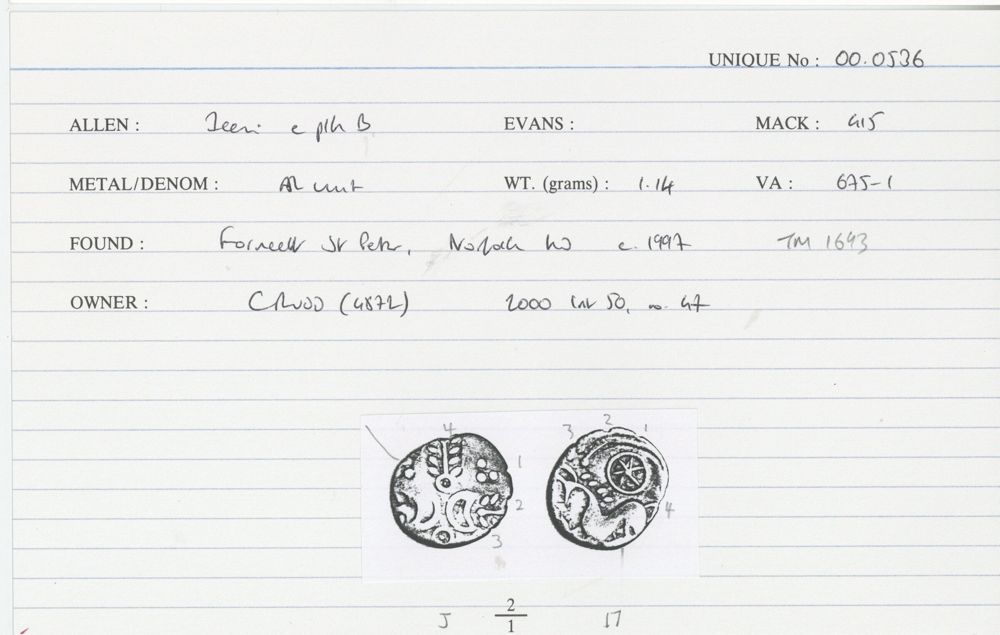 UNIQUE No : 00.0536
ALLEN : Iceni e plh B EVANS : MACK : 415
METAL/DENOM : AR unit WT. (grams) : 1.14 VA : 675-1
FOUND : Forncett St Peter, Norfolk c. 1997 TM 1693
OWNER : (4872) 2000 50, no. 47
4 3 2 1
1
2 4
3
J 2/1 17